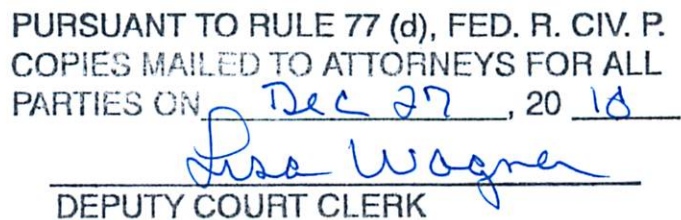 PURSUANT TO RULE 77 (d), FED. R. CIV. P.
COPIES MAILED TO ATTORNEYS FOR ALL
PARTIES ON Dec 27, 20 18
Lisa Wagner
DEPUTY COURT CLERK